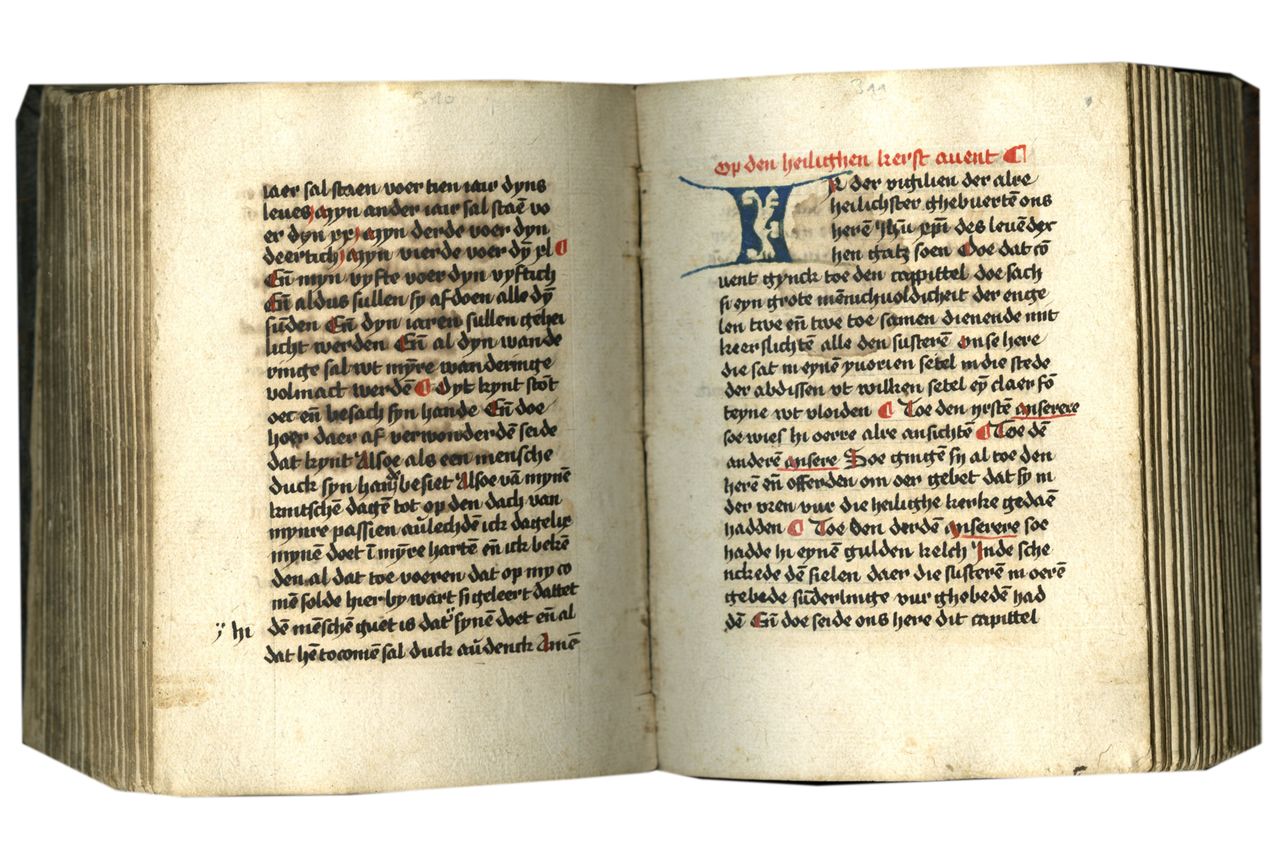 310
iaer sal staen voer tien iair dyns
leues myn ander iair sal staē vo
er dyn xx myn derde voer dyn
deertich myn vierde voer dȳ xl
Eñ myn vyfte voer dyn vyftich
Eñ aldus sullen sy af doen alle dȳ
sūden Eñ dyn iaren sullen gehei
licht werden Eñ al dyn wande
ringe sal wt mȳre wanderinge
volmact werdē Dyt kynt stōt
oec eñ besach syn hande Eñ doe
hoer daer af verwonderdē seide
dat kynt Alsoe als een mensche
duck syn hand besiet Alsoe vā mynē
kintschē dagē tot op den dach van
mynre passien aūlechdē ick dagelix
mynē doet ī mȳre hartē eñ ick bekē
den al dat toe voeren dat op my co
mē solde hier by wart si geleert dattet
dē mēschē guet is dat synē doet eñ al
ÿ hi
dat hē tocomē sal duck aūdenck Amē
311
Op den heilighen kerst auent
IN der vigilien der alre
heilichster ghebuertē ons
herē Jhū xpī des leuēder
hen gatz soen Doe dat cō
uent gynck toe den cappittel doe sach
si eyn grote mēnichuoldicheit der enge
len twe eñ twe toe samen dienende mit
keerslichtē alle den susterē Onse here
die sat in eynē yuorien setel in die stede
der abdissen vt wilken setel eȳ claer fō
teyne wt vloiden Toe den yrstē miserere
soe wies hi oerre alre ansichtē Toe dē
anderē misere Soe gingē sy al toe den
herē eñ offerden om oer gebet dat sy in
der vren vur die heilighe kerke gedaē
hadden Toe den derdē miserere soe
hadde hi eynē gulden kelch Inde sche
nckede dē sielen daer die susterē in oerē
gebede sūderlinge vur ghebedē had
dē Eñ doe seide ons here dit cappittel